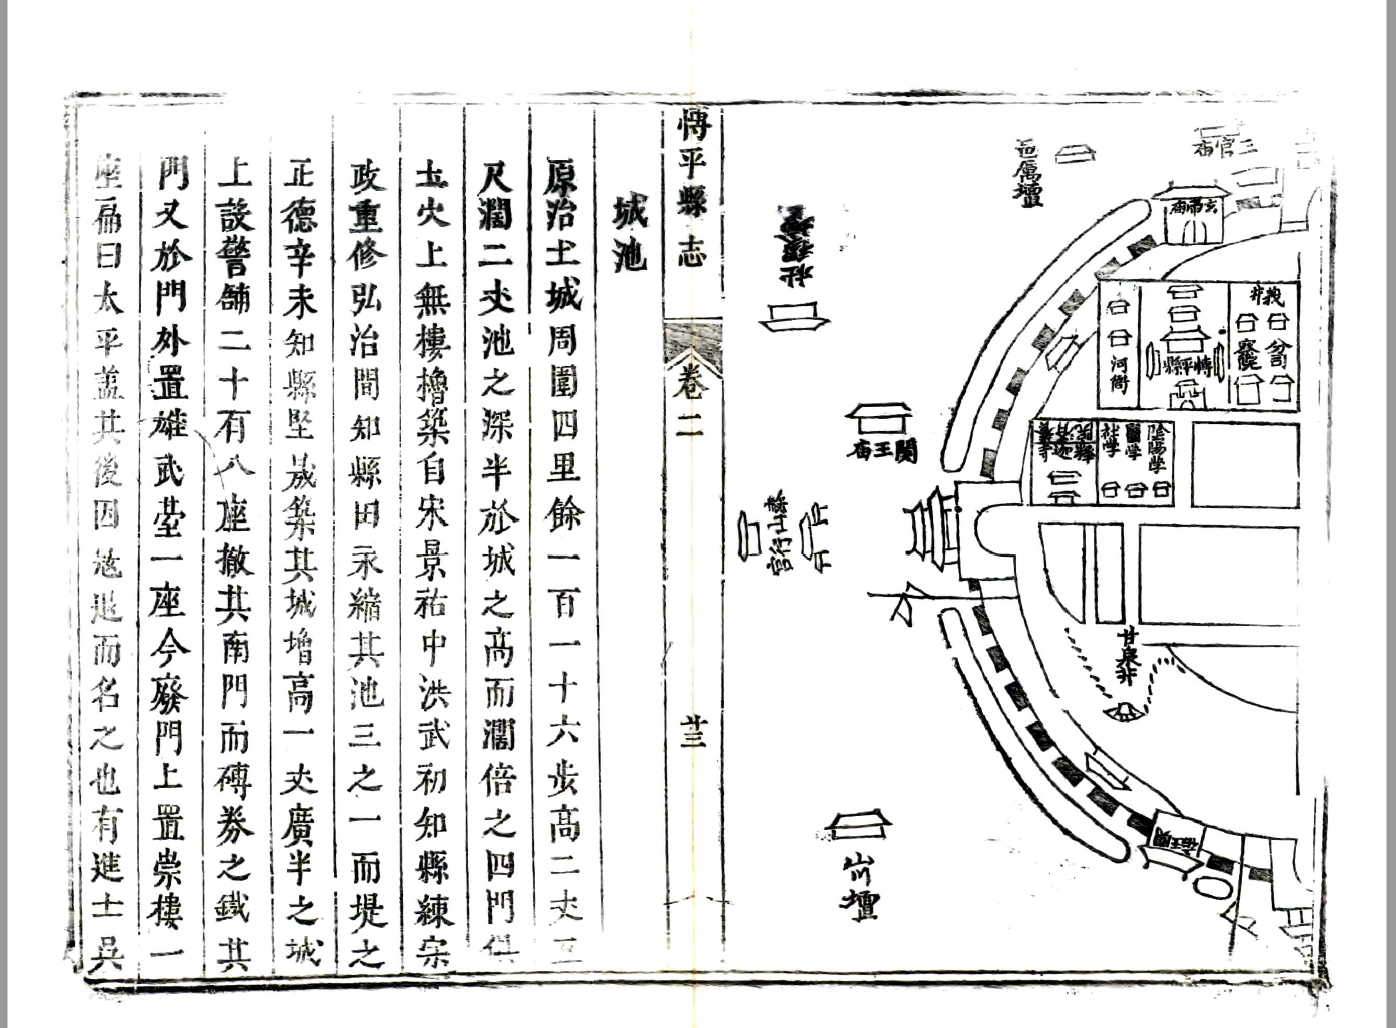 三官庙
邑厲壇
玄帝庙
社稷壇
博平縣
河衙
関王庙
陰陽学
醫学
社学
行宮
甘泉井
山川壇
博平縣志
卷二
廿三
城池
原治土城周圍四里餘一百一十六步高二丈三
尺濶二丈池之深半於城之高而濶倍之四門俱
土穴上無樓櫓築自宋景祐中洪武初知縣練宗
政重修弘治間知縣田永縮其池三之一而堤之
正德辛未知縣堅晟築其城增高一丈廣半之城
上設警舖二十有八座撤其南門而磚券之鐵其
門又於門外置雄武臺一座今廢門上置崇樓一
座扁曰太平盖其後因退而名之也有進士吳